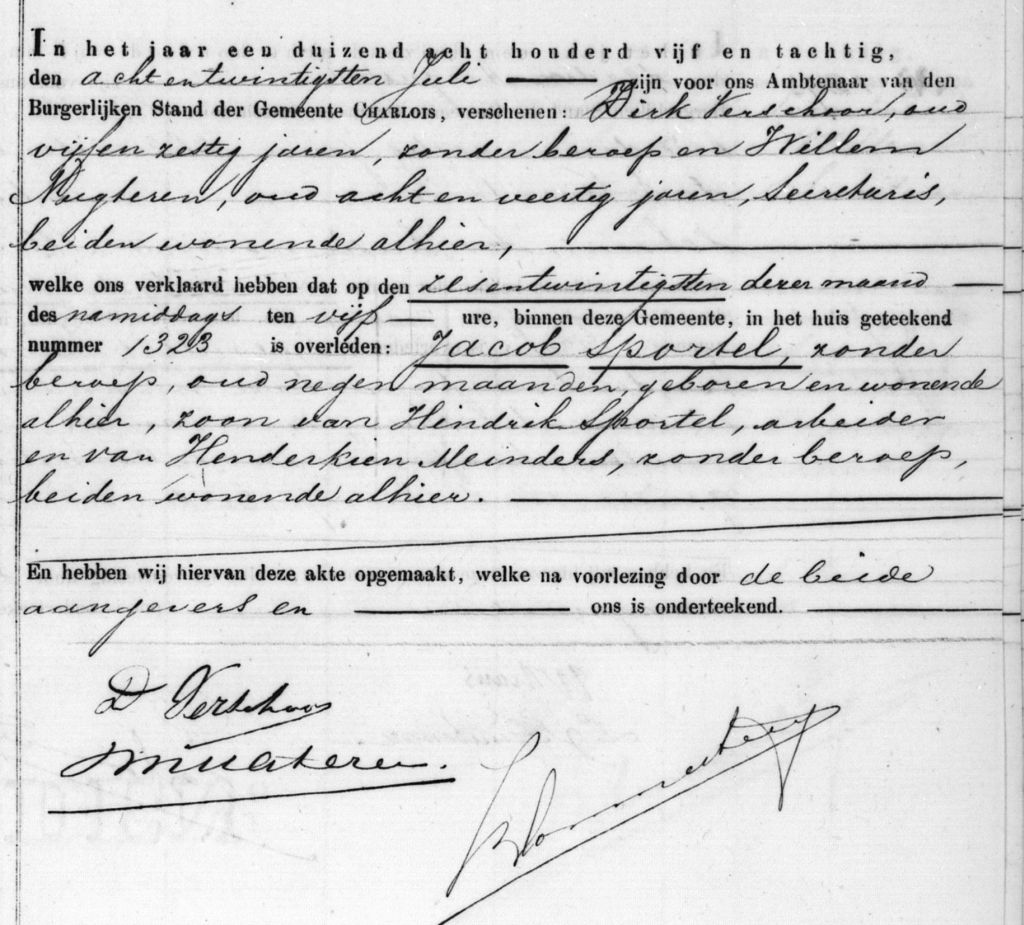 In het jaar een duizend acht honderd vijf en tachtig,
den achtentwintigsten Juli zijn voor ons Ambtenaar van den
Burgerlijken Stand der Gemeente CHARLOIS, verschenen: Dirk Verschoor, oud
vijfen zestig jaren, zonder beroep en Willem
Nugteren, oud acht en veertig jaren, Secretaris,
beiden wonende alhier,
welke ons verklaard hebben dat op den zesentwintigsten dezer maand
des namiddags ten vijf ure, binnen deze Gemeente, in het huis geteekend
nummer 1323 is overleden: Jacob Sportel, zonder
beroep, oud negen maanden, geboren en wonende
alhier, zoon van Hindrik Sportel, arbeider
en van Henderkien Meinders, zonder beroep,
beiden wonende alhier.
En hebben wij hiervan deze akte opgemaakt, welke na voorlezing door de beide
aangevers en ons is onderteekend.
D Verschoor
WNugteren.